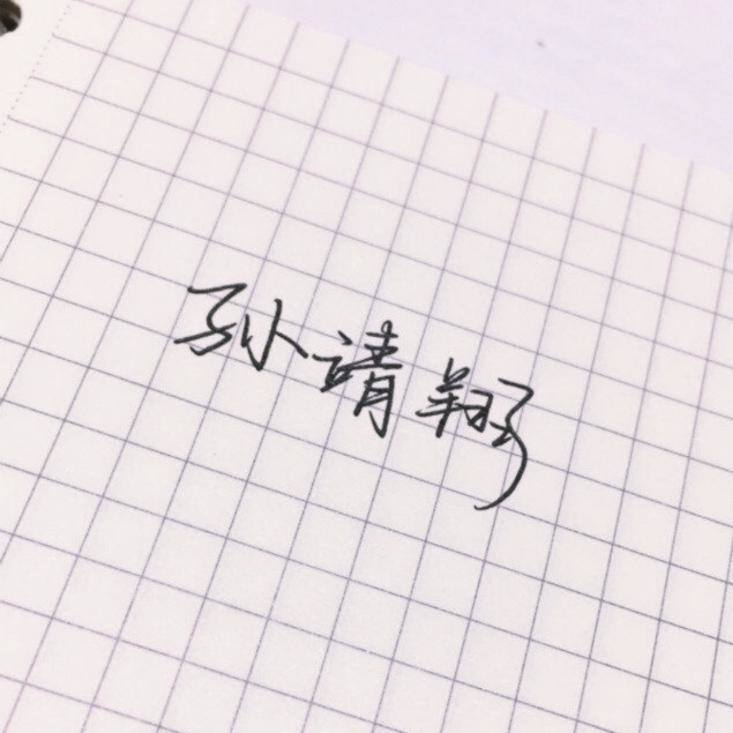 孙请翔